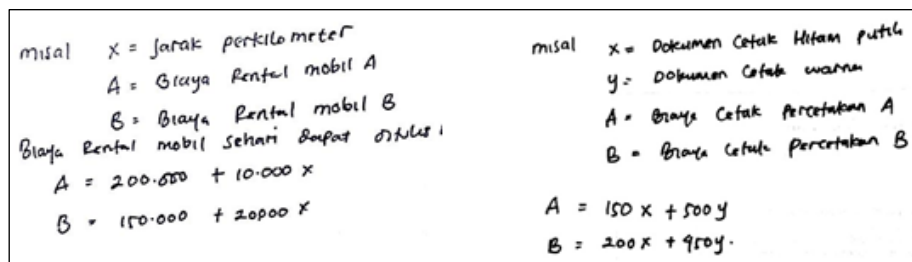 misal x = jarak perkilometer
A = Biaya Rental mobil A
B = Biaya Rental mobil B
Biaya Rental mobil sehari dapat ditulis :
A = 200.000 + 10.000 x
B = 150.000 + 20000 x
misal x = Dokumen Cetak Hitam putih
y = Dokumen Cetak warna
A = Biaya Cetak Percetakan A
B = Biaya Cetak Percetakan B
A = 150 x + 500 y
B = 200 x + 450 y.